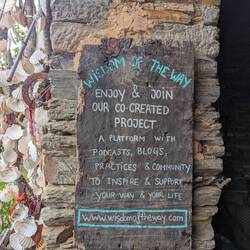 WISDOM OF THE WAY
ENJOY & JOIN
OUR CO-CREATED
PROJECT
A PLATFORM WITH
PODCASTS, BLOGS,
PRACTICES & COMMUNITY
TO INSPIRE & SUPPORT
YOUR WAY & YOUR LIFE
www.wisdomoftheway.com